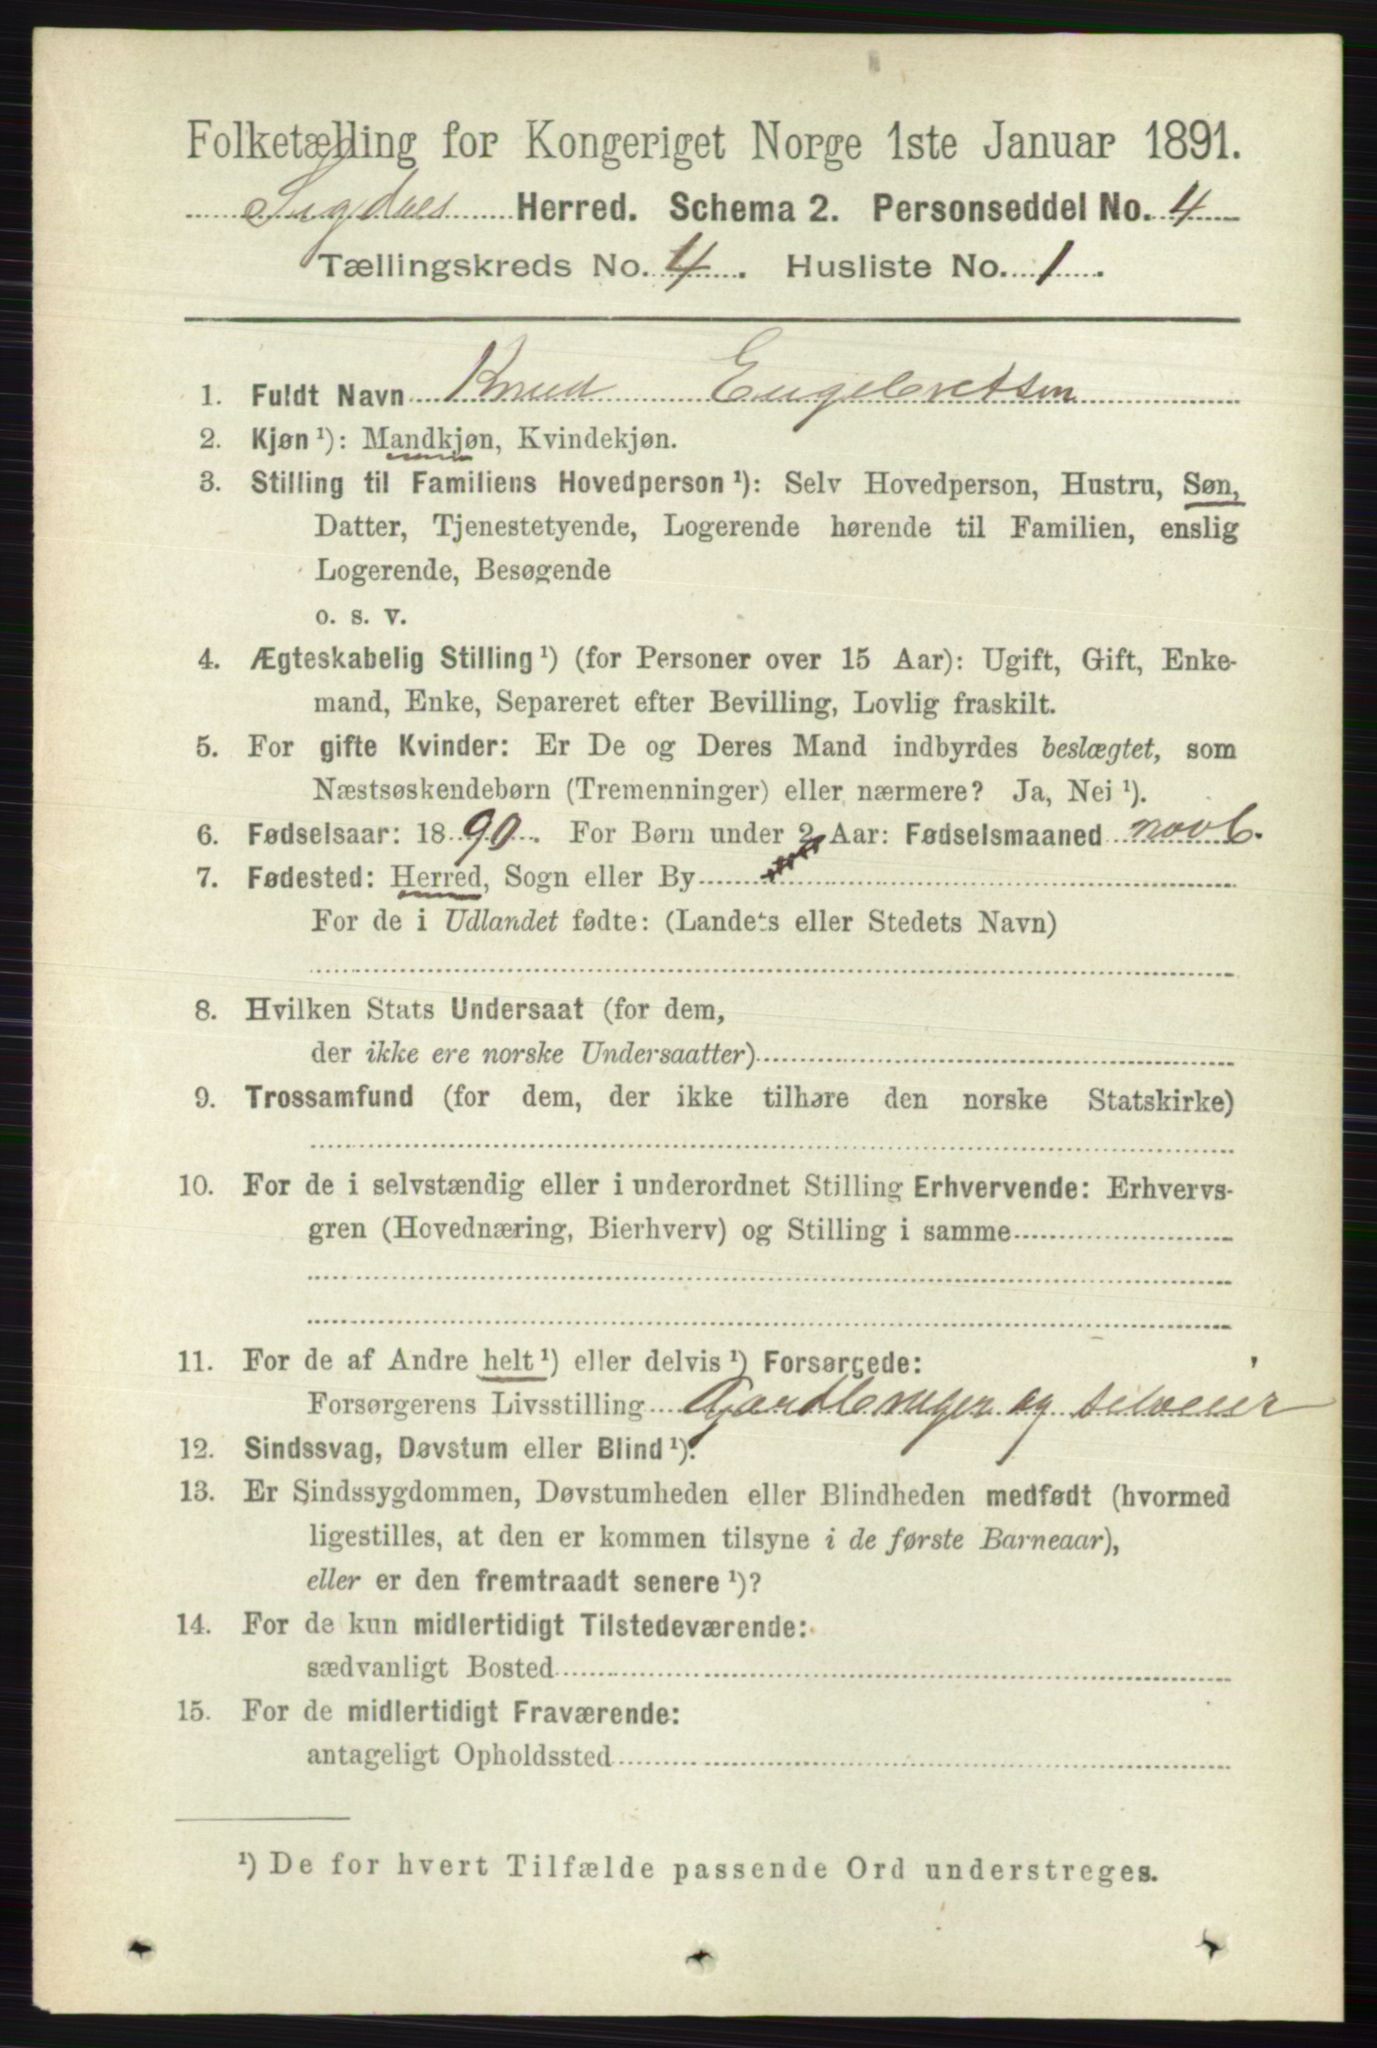 Folketælling for Kongeriget Norge 1ste Januar 1891.
Sigdals Herred. Schema 2. Personseddel No. 4
Tællingskreds No. 4. Husliste No. 1.
1. Fuldt Navn Knud Engebretsen
2. Kjøn ¹): Mandkjøn, Kvindekjøn.
3. Stilling til Familiens Hovedperson ¹): Selv Hovedperson, Hustru, Søn,
Datter, Tjenestetyende, Logerende hørende til Familien, enslig
Logerende, Besøgende
o. s. v.
4. Ægteskabelig Stilling ¹) (for Personer over 15 Aar): Ugift, Gift, Enke-
mand, Enke, Separeret efter Bevilling, Lovlig fraskilt.
5. For gifte Kvinder: Er De og Deres Mand indbyrdes beslægtet, som
Næstsøskendebørn (Tremenninger) eller nærmere? Ja, Nei ¹).
6. Fødselsaar: 1890. For Børn under 2 Aar: Fødselsmaaned novb.
7. Fødested: Herred, Sogn eller By
For de i Udlandet fødte: (Landets eller Stedets Navn)
8. Hvilken Stats Undersaat (for dem,
der ikke ere norske Undersaatter)
9. Trossamfund (for dem, der ikke tilhøre den norske Statskirke)
10. For de i selvstændig eller i underordnet Stilling Erhvervende: Erhvervs-
gren (Hovednæring, Bierhverv) og Stilling i samme
11. For de af Andre helt ¹) eller delvis ¹) Forsørgede:
Forsørgerens Livsstilling Gaardbruger og selveier
12. Sindssvag, Døvstum eller Blind ¹).
13. Er Sindssygdommen, Døvstumheden eller Blindheden medfødt (hvormed
ligestilles, at den er kommen tilsyne i de første Barneaar),
eller er den fremtraadt senere ¹)?
14. For de kun midlertidigt Tilstedeværende:
sædvanligt Bosted
15. For de midlertidigt Fraværende:
antageligt Opholdssted
¹) De for hvert Tilfælde passende Ord understreges.